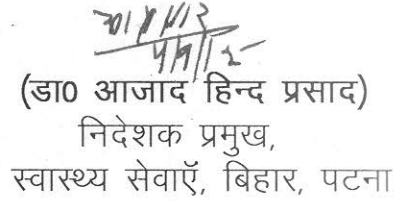 (डा0 आजाद हिन्द प्रसाद)
निदेशक प्रमुख,
स्वास्थ्य सेवाऍ, बिहार, पटना